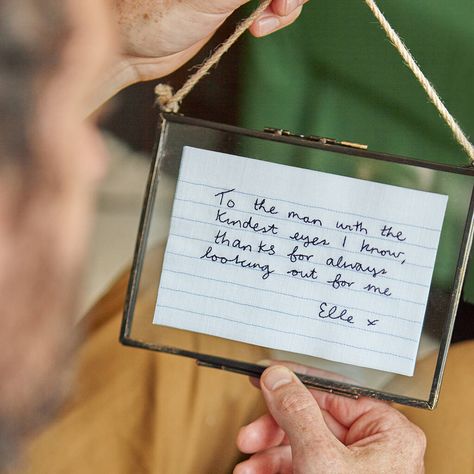 To the man with the
kindest eyes I know,
thanks for always
looking out for me
Elle x